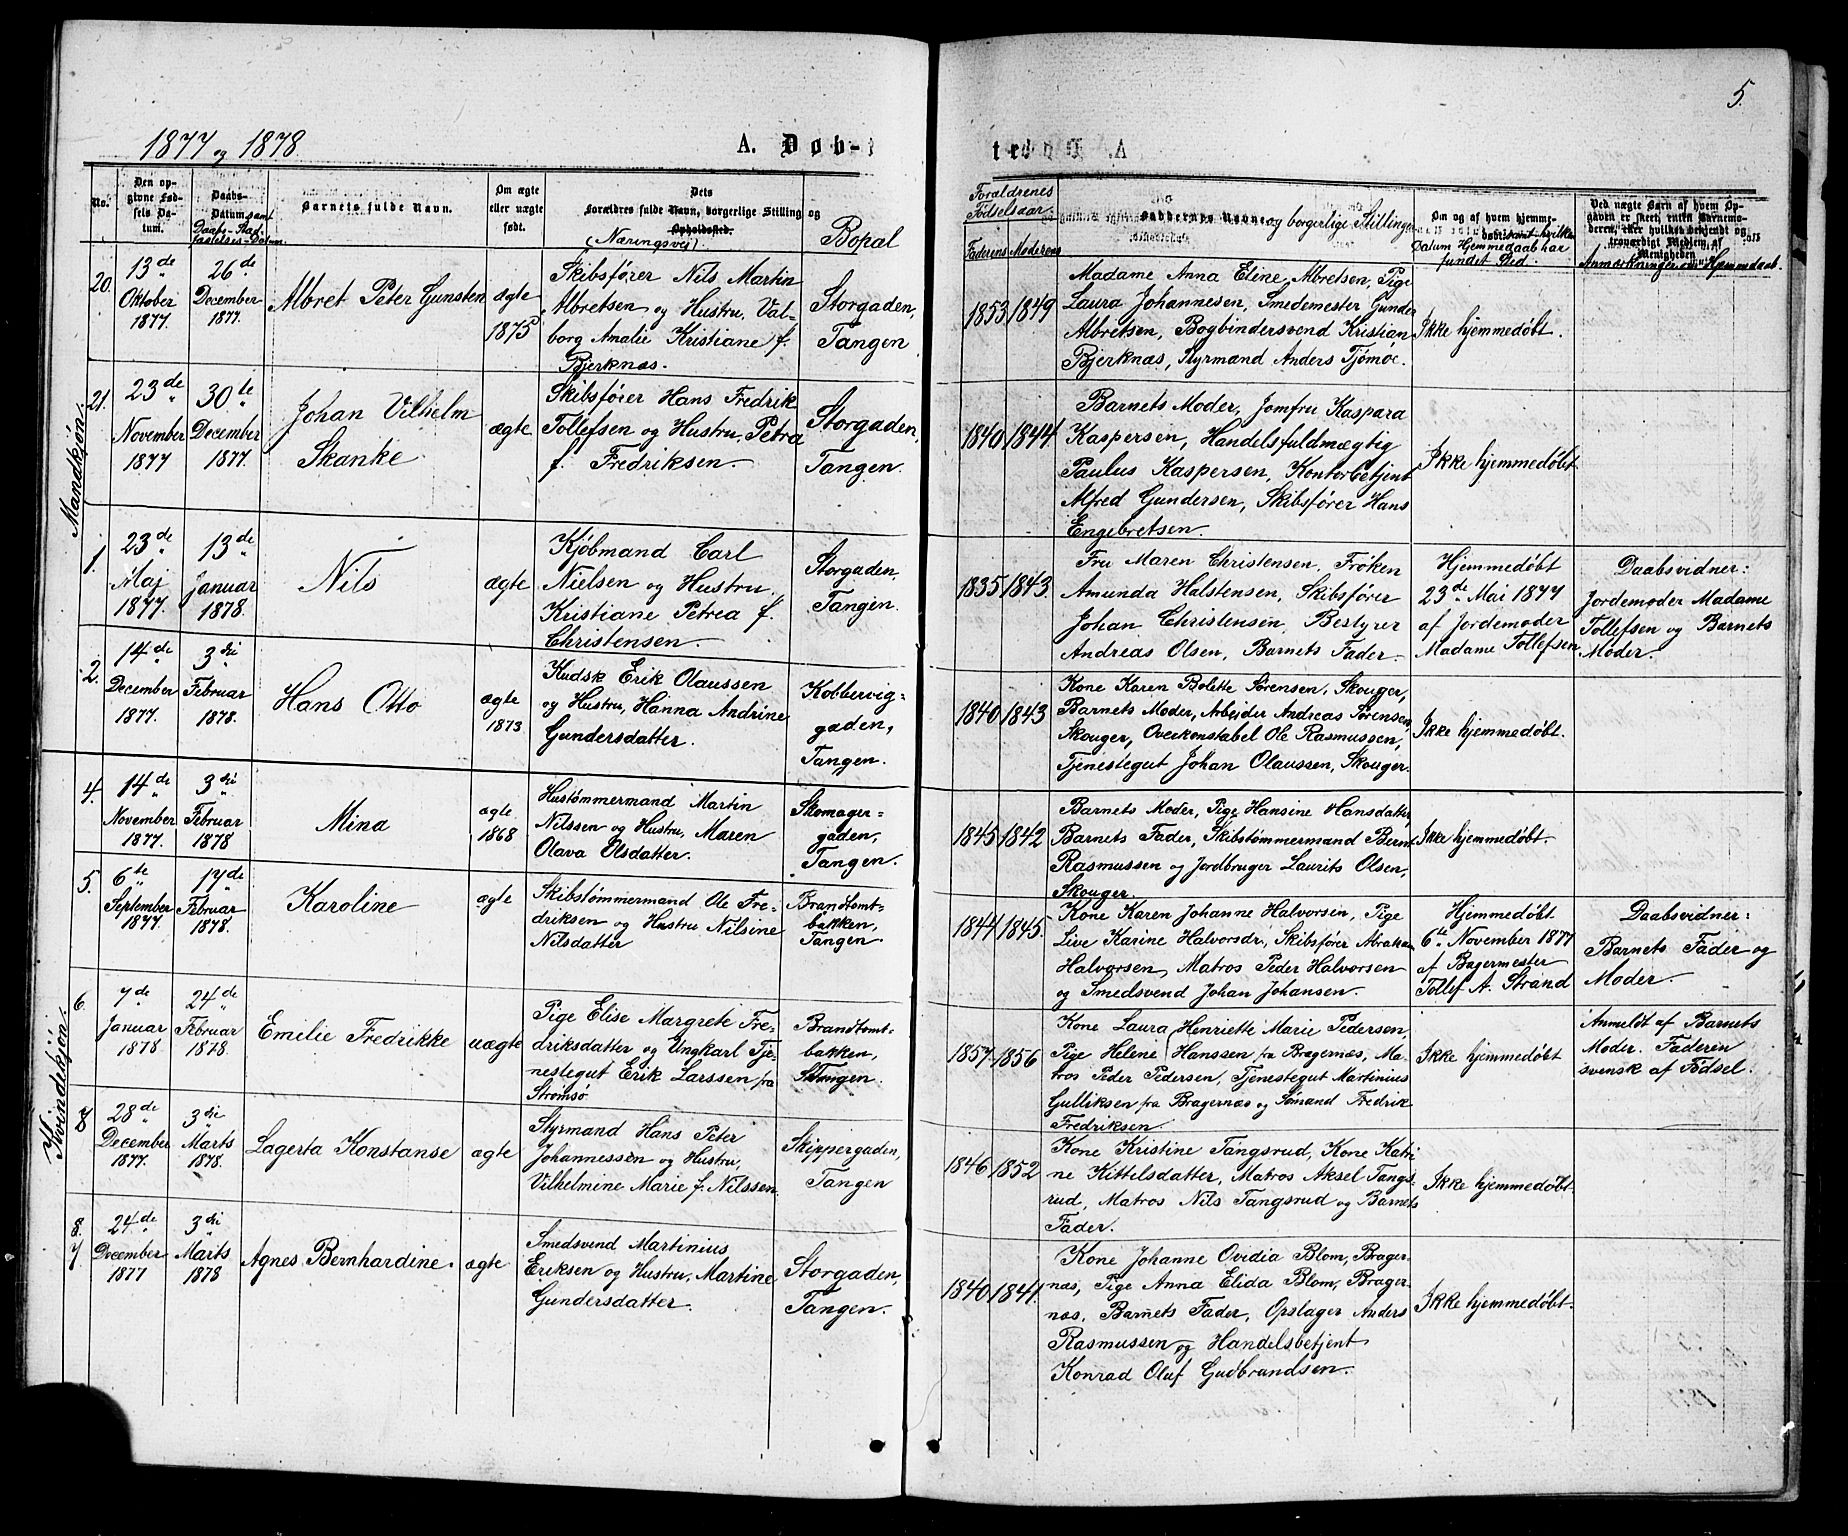 5.
1877 og 1878
A. Døb-
te.
No.
Den op-
givne Fød-
sels Da-
tum.
Daabs-
Datum samt
Daabs-Stad-
fæstelses-Datum.
Barnets fulde Navn.
Om ægte
eller uægte
født.
Dets
Forældres fulde Navn, borgerlige Stilling og
Opholdssted.
(Næringsvei)
Bopal
Forældrenes
Fødselsaar.
Faderens Moderens
Faddernes Navne og borgerlige Stilling
Om og af hvem hjemme-
døbt samt hvilken
Datum Hjemmedaab har
fundet Sted.
Ved uægte Barn af hvem Op-
gaven er skeet, enten Barnemo-
deren, eller hvilket bekjendt og
troværdigt Medlem af
Menigheden
Anmærkninger om Hjemmedaab.
Mandkjøn.
20.
13de
Oktober
1877
26de
December
1877.
Albret Peter Gunsten
ægte
1875
Skibsfører Nils Martin
Albretsen og Hustru, Val-
borg Amalie Kristiane f.
Bjerknæs.
Storgaden,
Tangen
1853 1849
Madame Anna Eline Albretsen, Pige
Laura Johannesen, Smedemester Gunder
Albretsen, Bogbindersvend Kristian
Bjerknæs, Styrmand Anders Tjömöe.
Ikke hjemmedøbt.
21.
23de
November
1877
30te
December
1877.
Johan Vilhelm
Skanke
ægte
Skibsfører Hans Fredrik
Tollefsen og Hustru, Petra
f. Fredriksen.
Storgaden,
Tangen.
1840 1844
Barnets Moder, Jomfru Kaspara
Kaspersen, Handelsfuldmægtig
Paulus Kaspersen, Kontorbetjent
Alfred Gundersen, Skibsfører Hans
Engebretsen.
Ikke hjemmedøbt
1.
23de
Maj
1877.
13de
Januar
1878.
Nils
ægte
Kjøbmand Carl
Nielsen og Hustru
Kristiane Petrea f.
Christensen.
Storgaden,
Tangen.
1835 1843
Fru Maren Christensen, Frøken
Amunda Halstensen, Skibsfører
Johan Christensen, Bestyrer
Andreas Olsen, Barnets Fader.
Hjemmedøbt
23de Mai 1877
af Jordemoder
Madame Tollefsen
Daabsvidner:
Jordemoder Madame
Tollefsen og Barnets
Moder.
2.
14de
December
1877.
3die
Februar
1878.
Hans Otto
ægte
1873
Kudsk Erik Olaussen
og Hustru, Hanna Andrine
Gundersdatter.
Kobbervig-
gaden,
Tangen.
1840 1843
Kone Karen Bolette Sørensen, Skouger,
Barnets Moder, Arbeider Andreas Sørensen,
Skouger, Overkonstabel Ole Rasmussen,
Tjenestegut Johan Olaussen, Skouger.
Ikke hjemmedøbt.
Kvindekjøn.
4.
14de
November
1877.
3die
Februar
1878
Mina
ægte
1868
Hustømmermand Martin
Nilssen og Hustru, Maren
Olava Olsdatter.
Skomager-
gaden,
Tangen.
1845 1842
Barnets Moder, Pige Hansine Hansdatter,
Barnets Fader, Skibstømmermand Bernt
Rasmussen og Jordbruger Laurits Olsen,
Skouger.
Ikke hjemmedøbt.
5.
6te
September
1877
17de
Februar
1878.
Karoline
ægte
Skibstømmermand Ole Fre-
driksen og Hustru Nilsine
Nilsdatter
Brandtomt-
bakken,
Tangen.
1844 1845.
Kone Karen Johanne Halvorsen, Pige
Live Karine Halvorsdr., Skibsfører Abraham
Halvorsen, Matros Peder Halvorsen
og Smedsvend Johan Johansen.
Hjemmedøbt
6te November 1877
af Bagermester
Tollef A. Strand
Daabsvidner:
Barnets Fader og
Moder.
6.
7de
Januar
1878
24de
Februar
1878.
Emilie Fredrikke
uægte
Pige Elise Margrete Fre-
driksdatter og Ungkarl Tje-
nestegut Erik Larssen fra
Strømsø
Brandtomt-
bakken,
Tangen.
1857 1856
Kone Laura Henriette Marie Pedersen,
Pige Helene Hanssen fra Bragernæs, Ma-
tros Peder Pedersen, Tjenestegut Martinius
Gulliksen fra Bragernæs og Sømand Fredrik
Fredriksen.
Ikke hjemmedøbt
Anmeldt af Barnets
Moder. Faderen
svensk af Fødsel.
28de
December
1877.
3die
Marts
1878.
Lagerta Konstanse
ægte
Styrmand Hans Peter
Johannessen og Hustru,
Vilhelmine Marie f. Nilssen
Skippergaden,
Tangen
1846 1852
Kone Kristine Tangsrud, Kone Katri-
ne Kittelsdatter, Matros Aksel Tangs-
rud, Matros Nils Tangsrud og Barnets
Fader.
Ikke hjemmedøbt
8.
7
24de
December
1877
3die
Marts
1878
Agnes Bernhardine.
ægte
Smedsvend Martinius
Eriksen og Hustru, Martine
Gundersdatter.
Storgaden,
Tangen.
1840 1841.
Kone Johanne Ovidia Blom, Brager-
næs, Pige Anna Elida Blom, Brager-
næs, Barnets Fader, Opslager Anders
Rasmussen og Handelsbetjent
Konrad Oluf Gudbrandsen.
Ikke hjemmedøbt.